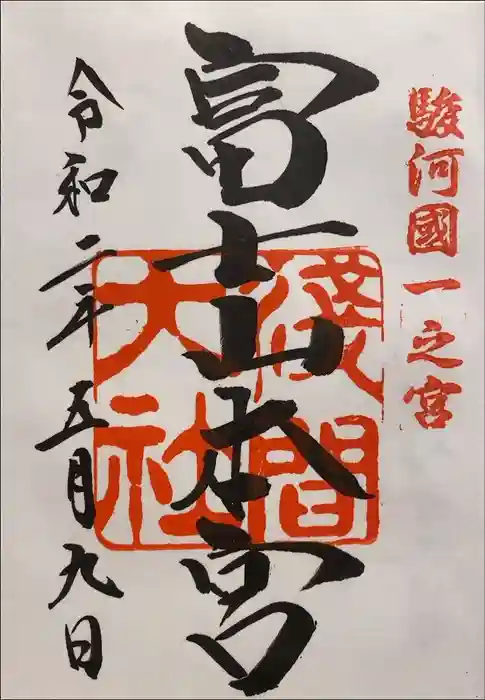 駿河國一之宮
富士山本宮
淺間
大社
令和二年五月九日